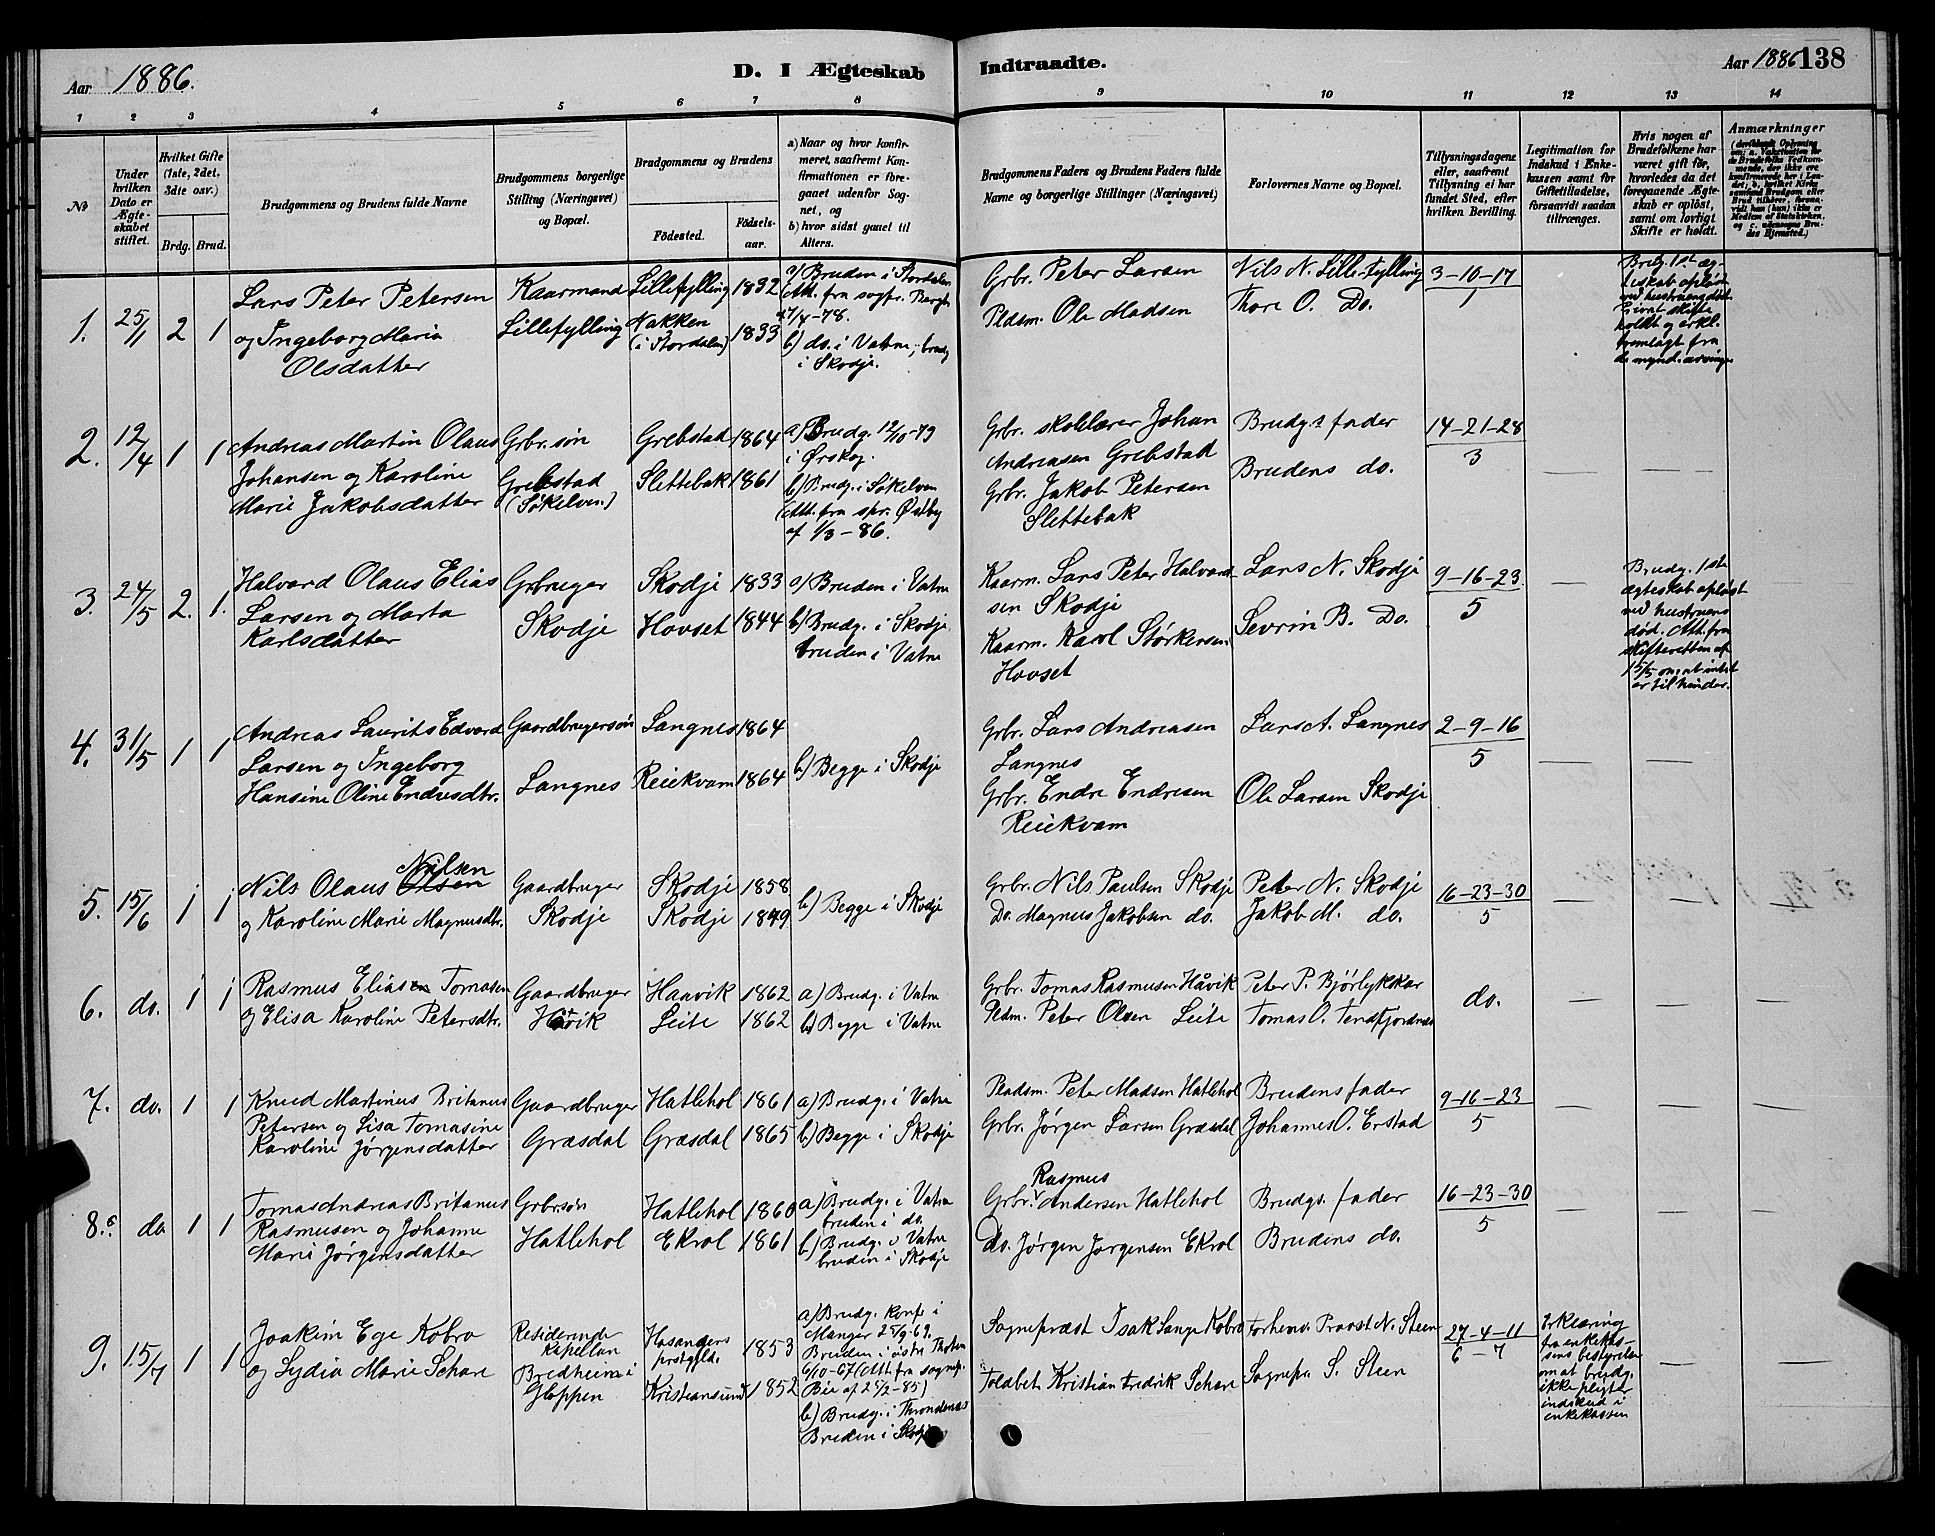 Aar 1886.
D. I Ægteskab
Indtraadte.
Aar 1886
138
1 2 3 4 5 6 7 8 9 10 11 12 13 14
No
Under hvilken Dato er Ægteskabet stiftet.
Hvilket Gifte (1ste, 2det, 3dte osv.)
Brdg. Brud.
Brudgommens og Brudens fulde Navne
Brudgommens borgerlige Stilling (Næringsvei) og Bopæl.
Brudgommens og Brudens
Fødested.
Fødselsaar.
a) Naar og hvor konfirmeret, saafremt Konfirmationen er foregaaet udenfor Sognet, og
b) hvor sidst gaaet til Alters.
Brudgommens Faders og Brudens Faders fulde Navne og borgerlige Stillinger (Næringsvei)
Forlovernes Navne og Bopæl.
Tillysningsdagene eller, saafremt Tillysning ei har fundet Sted, efter hvilken Bevilling.
Legitimation for Indskud i Enkekassen samt for Giftetilladelse, forsaavidt saadan tiltrænges.
Hvis nogen af Brudefolkene har været gift før, hvorledes da det foregaaende Ægteskab er opløst, samt om lovligt Skifte er holdt.
Anmærkninger
1. 25/1 2 1
Lars Peter Petersen
og Ingeborg Maria
Olsdatter
Kaarmand
Lillefylling
Lillefylling 1832
Nakken
(i Stordalen) 1833
a) Bruden i Stordalen
(Att. fra sogpr.
17/4-78.
b) do. i Vatne, brudg
i Skodje.
Grbr. Peter Larsen
Pldsm. Ole Madsen
Nils N. Lille-Fylling
Thore O. Do.
3-10-17
1
Brudg. 1st æg-
teskab opløst
ved hustruens død.
Privat skifte
holdt og erkl.
fremlagt fra
de mynd. arvinger
2. 12/4 1 1
Andreas Martin Olaus
Johansen og Karoline
Marie Jakobsdatter
Grbr. søn
Grebstad
(Søkelven.)
Grebstad 1864
Slettebak 1861
a) Brudg. 12/10-79
i Ørskog.
b) Brudg. i Søkelven
(Att. fra spr. Østby
af 1/3-86.
Grbr. skolelærer Johan
Andreasen Grebstad
Grbr. Jakob Petersen
Slettebak
Brudg.s fader
Brudens do.
14-21-28
3
3. 24/5 2. 1.
Halvard Olaus Elias
Larsen og Marta
Karlsdatter
Grbruger
Skodje
Skodje 1833
Hovset 1844
a) Bruden i Vatne
b) Brudg. i Skodje
bruden i Vatne
Kaarm. Lars Peter Halvard-
sen Skodje
Kaarm. Karol Størkersen
Hovset
Lars N. Skodje
Sevrin B. Do.
9-16-23.
5
Brudg. 1st
ægteskab opløst
ved hustruens
død. Att. fra
skifteretten af
15/5 om, at intet
er til hinder.
4. 31/5 1 1
Andreas Laurits Edvard
Larsen og Ingeborg
Hansine Oline Endresdtr.
Gaardbrugersøn
Langnes
Langnes 1864
Reiekvam 1864
b) Begge i Skodje
Grbr. Lars Andreasen
Langnes
Grbr. Endre Endresen
Reiekvam
Lars A. Langnes
Ole Larsen Skodje
2-9-16
5
5. 15/6 1 1
Nilsen
Nils Olaus Olsen
og Karoline Marie Magnusdtr.
Gaardbruger
Skodje
Skodje 1858
Skodje 1849
b) Begge i Skodje
Grbr. Nils Paulsen Skodje
Do. Magnus Jakobsen do.
Peter N. Skodje
Jakob M. do.
16-23-30
5
6. do. 1 1
Rasmus Eliasen Tomasen
og Elisa Karoline Petersdtr.
Gaardbruger
Håvik
Haavik 1862
Leite 1862
a) Brudg. i Vatne
b) Begge i Vatne
Grbr. Tomas Rasmusen Håvik
Pldm. Peter Olsen Leite
Peter P. Bjørlykskar
Tomas O. Tennfjordnes
do.
7. do. 1 1
Knud Martinus Britanus
Petersen og Lisa Tomasine
Karoline Jørgensdatter
Gaardbruger
Græsdal
Hatlehol 1861
Græsdal 1865
a) Brudg. i Vatne
b) Begge i Skodje
Pladsm. Peter Madsen Hatlehol
Grbr. Jørgen Larsen Græsdal
Brudens fader
Johannes O. Erstad
9-16-23
5
8. do 1 1
Tomas Andreas Britanus
Rasmusen og Johanne
Marie Jørgensdatter
Grbrsøn
Hatlehol
Hatlehol 1860
Ekrol 1861
a) Brudg. i Vatne
bruden i do.
b) Brudg. i Vatne
bruden i Skodje
Rasmus
Grbr. Andersen Hatlehol
Do. Jørgen Jørgensen Ekrol
Brudgs. fader
Brudens do.
16-23-30
5
9. 15/7 1 1
Joakim Ege Kobro
og Lydia Marie Schare
Residerende
Kapellan
Bredheim i
Gloppen
Hasanders
prstgjld. 1853
Kristiansund 1852
a) Brudg. konf. i
Manger 25/9-69.
Bruden i østre Thoten
6/10-67 (Att. fra sognep.
Bie af 25/2-85)
b) Brudg. i Throndenes
Bruden i Skodje
Sognepræst Isak Lange Kobro
Toldbet. Kristian Fredrik Schare
Forhenv. Provst N. Steen
Sognepr. S. Steen
27-4-11
6-7
Erklæring
fra enkekas-
sens bestyrelse
om at brudg.
ikke pligter
indskud i
enkekassen